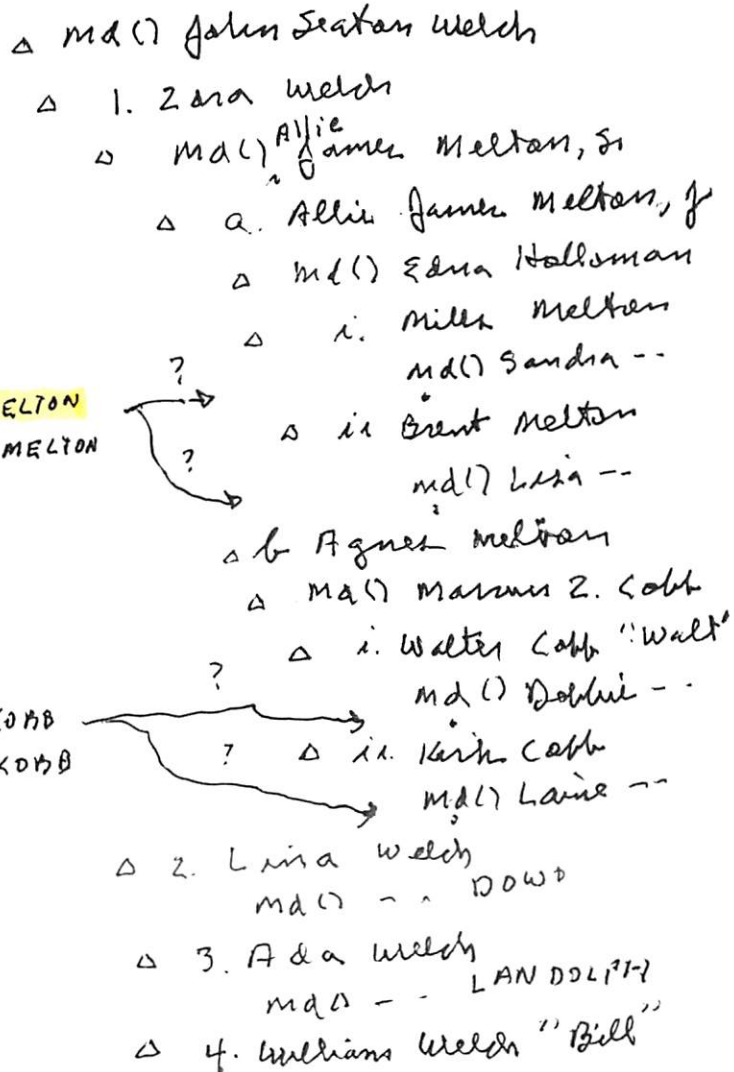 △ md () John Seaton Welch
△ 1. Zora Welch
△ md () Allie James Melton, Sr
△ a. Allie James Melton, Jr
△ md () Edna Holloman
△ i. Mills Melton
md () Sandra --
?
ELTON
MELTON
△ ii Brent Melton
?
md () Lisa --
△ b Agnes Melton
△ md () Marcus Z. Cobb
△ i. Walter Cobb "Walt"
?
md () Debbie --
△ ii. Kirk Cobb
?
md () Laine --
△ 2. Lina Welch
md () -- DOWD
△ 3. Ada Welch
md () -- LANDOLPH
△ 4. William Welch "Bill"